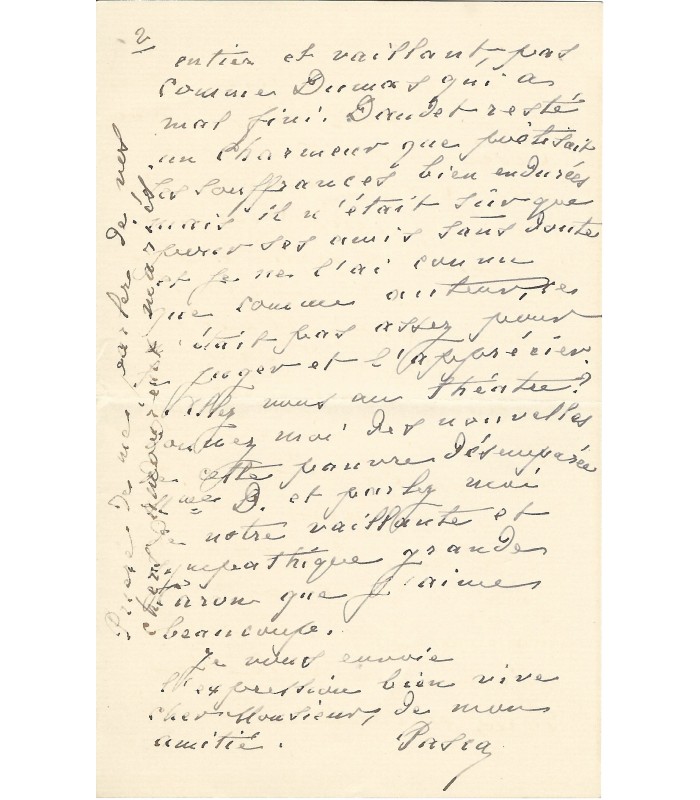 2
entier et vaillant, pas
comme Dumas qui a
mal fini. Daudet resté
un charmeur que poëtisait
ses souffrances bien endurées
mais il n'était sûr que
pour ses amis sans doute
et je ne l'ai connu
que comme auteur, ce
n'était pas assez pour
juger et l'apprécier
Allez vous au théatre?
donnez moi des nouvelles
de cette pauvre désemparée
Mme D. et parlez moi
de notre vaillante et
sympathique grande
que j'aime
beaucoup.
Je vous envoie
l'expression bien vive
cher Monsieur, de mon
amitié. Pasca
Prière de me parler de vos
chers amoureux mariés.